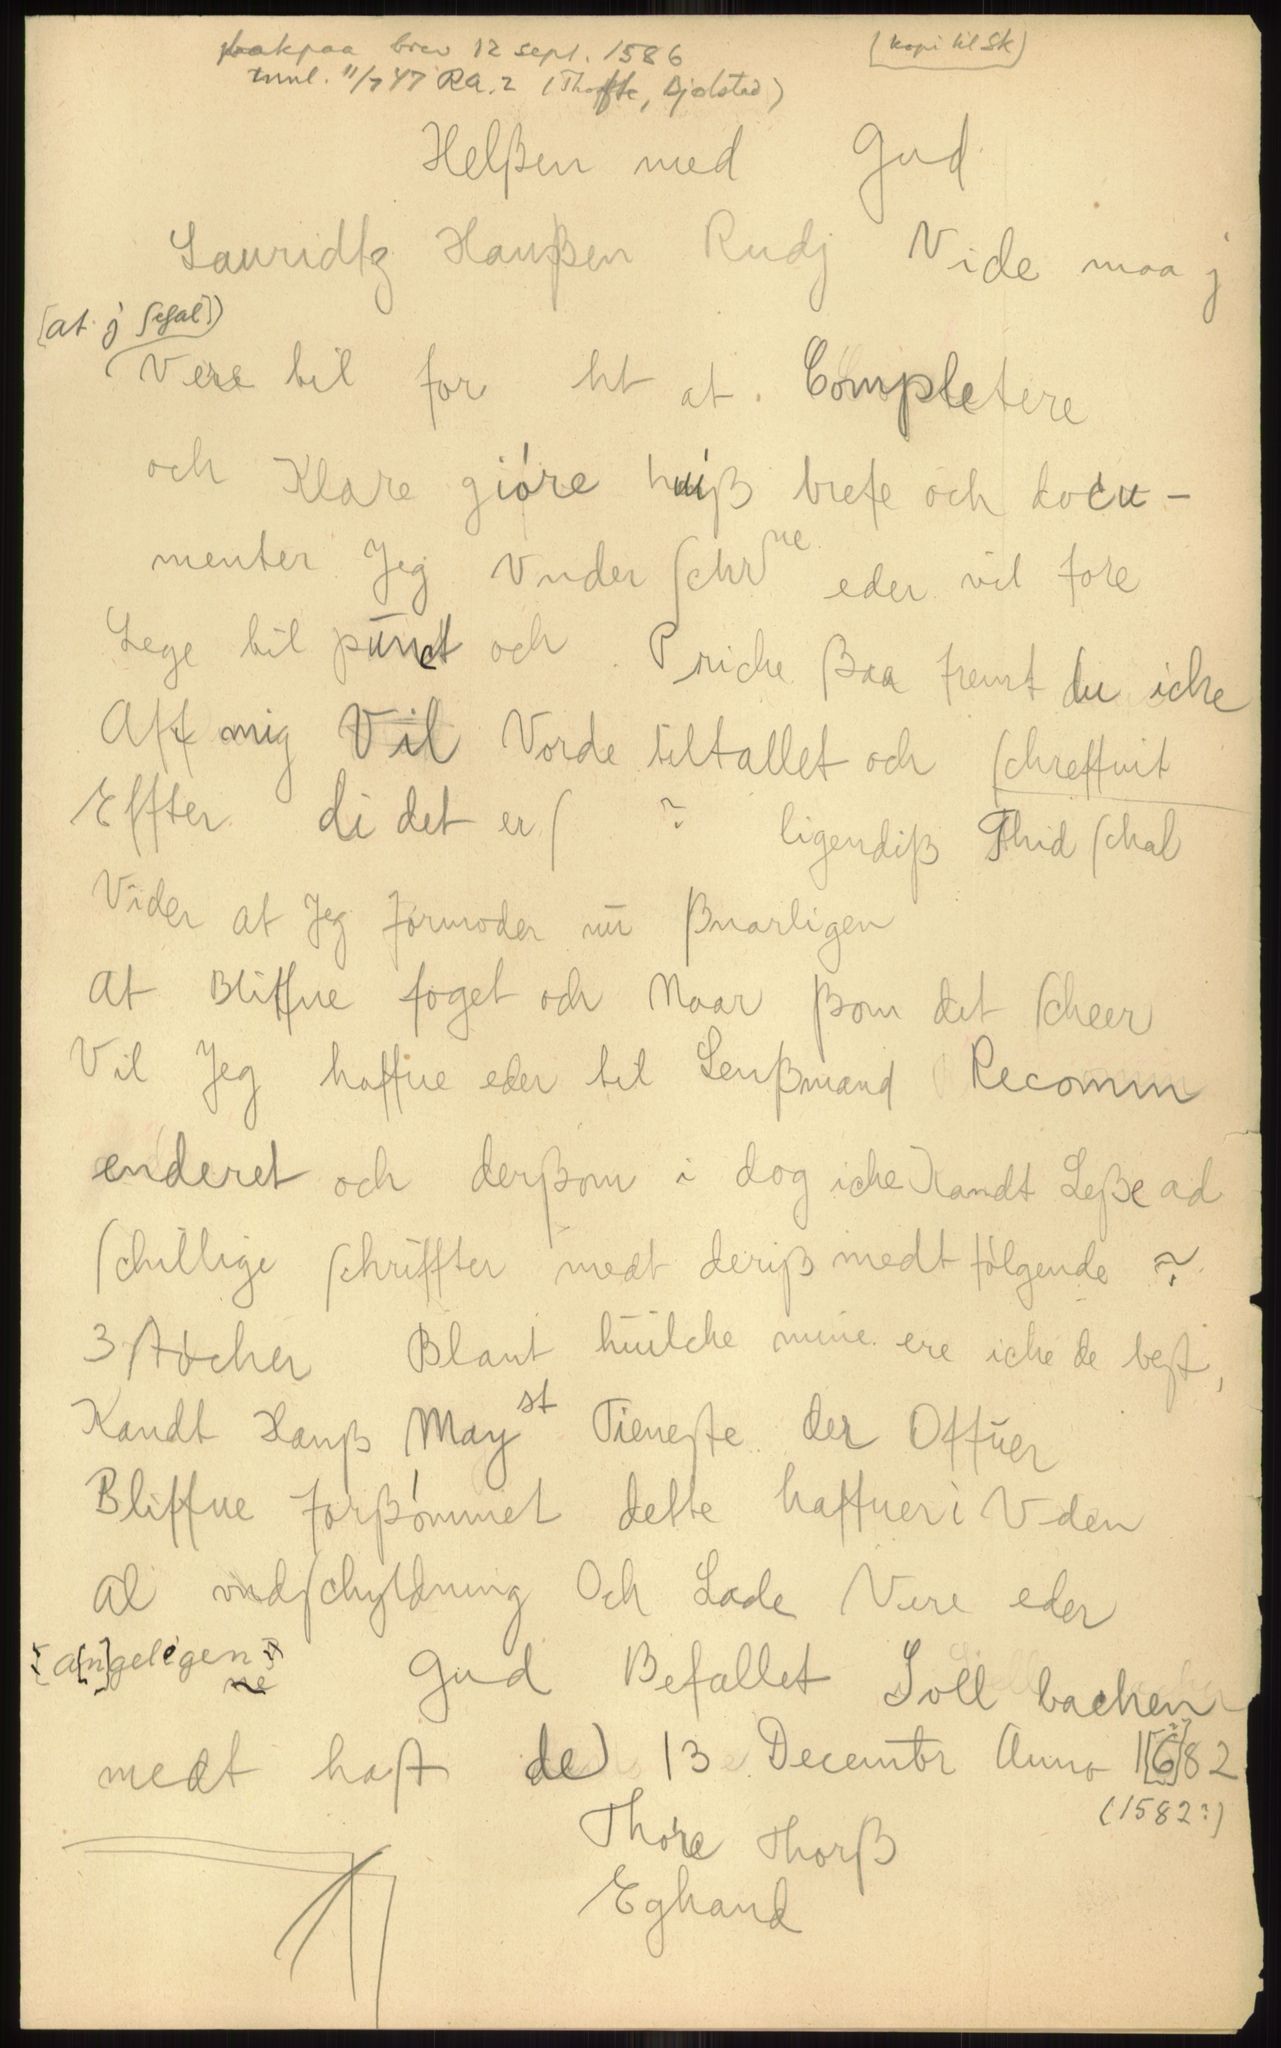 bakpaa brev 12 sept. 1586
innl. 11/7 47 RA. 2 (Thofte, Djolstad)
(kopi til Sk)
Helßen med Gud
Lauridtz Hanßen Rudj Vide maa j
[at j schal])
Vere til for ht at Completere
och Klare gióre huiß brefe och docu-
menter Jeg Vnder schrne eder vil fore
Lege til punct och Priche ßaa fremt du iche
Aff mig Vil Vorde tiltallet och schreffuit
Effter di det er ? ligendiß Thid schal
Vider at Jeg formoder nu ßnarligen
At Bliffue foget och Naar ßom det scheer
Vil Jeg haffue eder til Lenßmand Recomm
enderet och derßom i dog iche Kandt Leße ad
schillige schriffter medt deriß medt følgende ?
3 støcher Blant huilche mine ere iche de best,
Kandt Hanß Mayst Tieneste der Offuer
Bliffue forßómmet dette haffuer i Vden
al vndschyldning Och Lade Vere eder
[a[n]geligen]
ne
Gud Befallet Soll bachen
medt hast de) 13 Decembr Anno 1[6?]82
(1582?)
Thore Thorß
Eghand